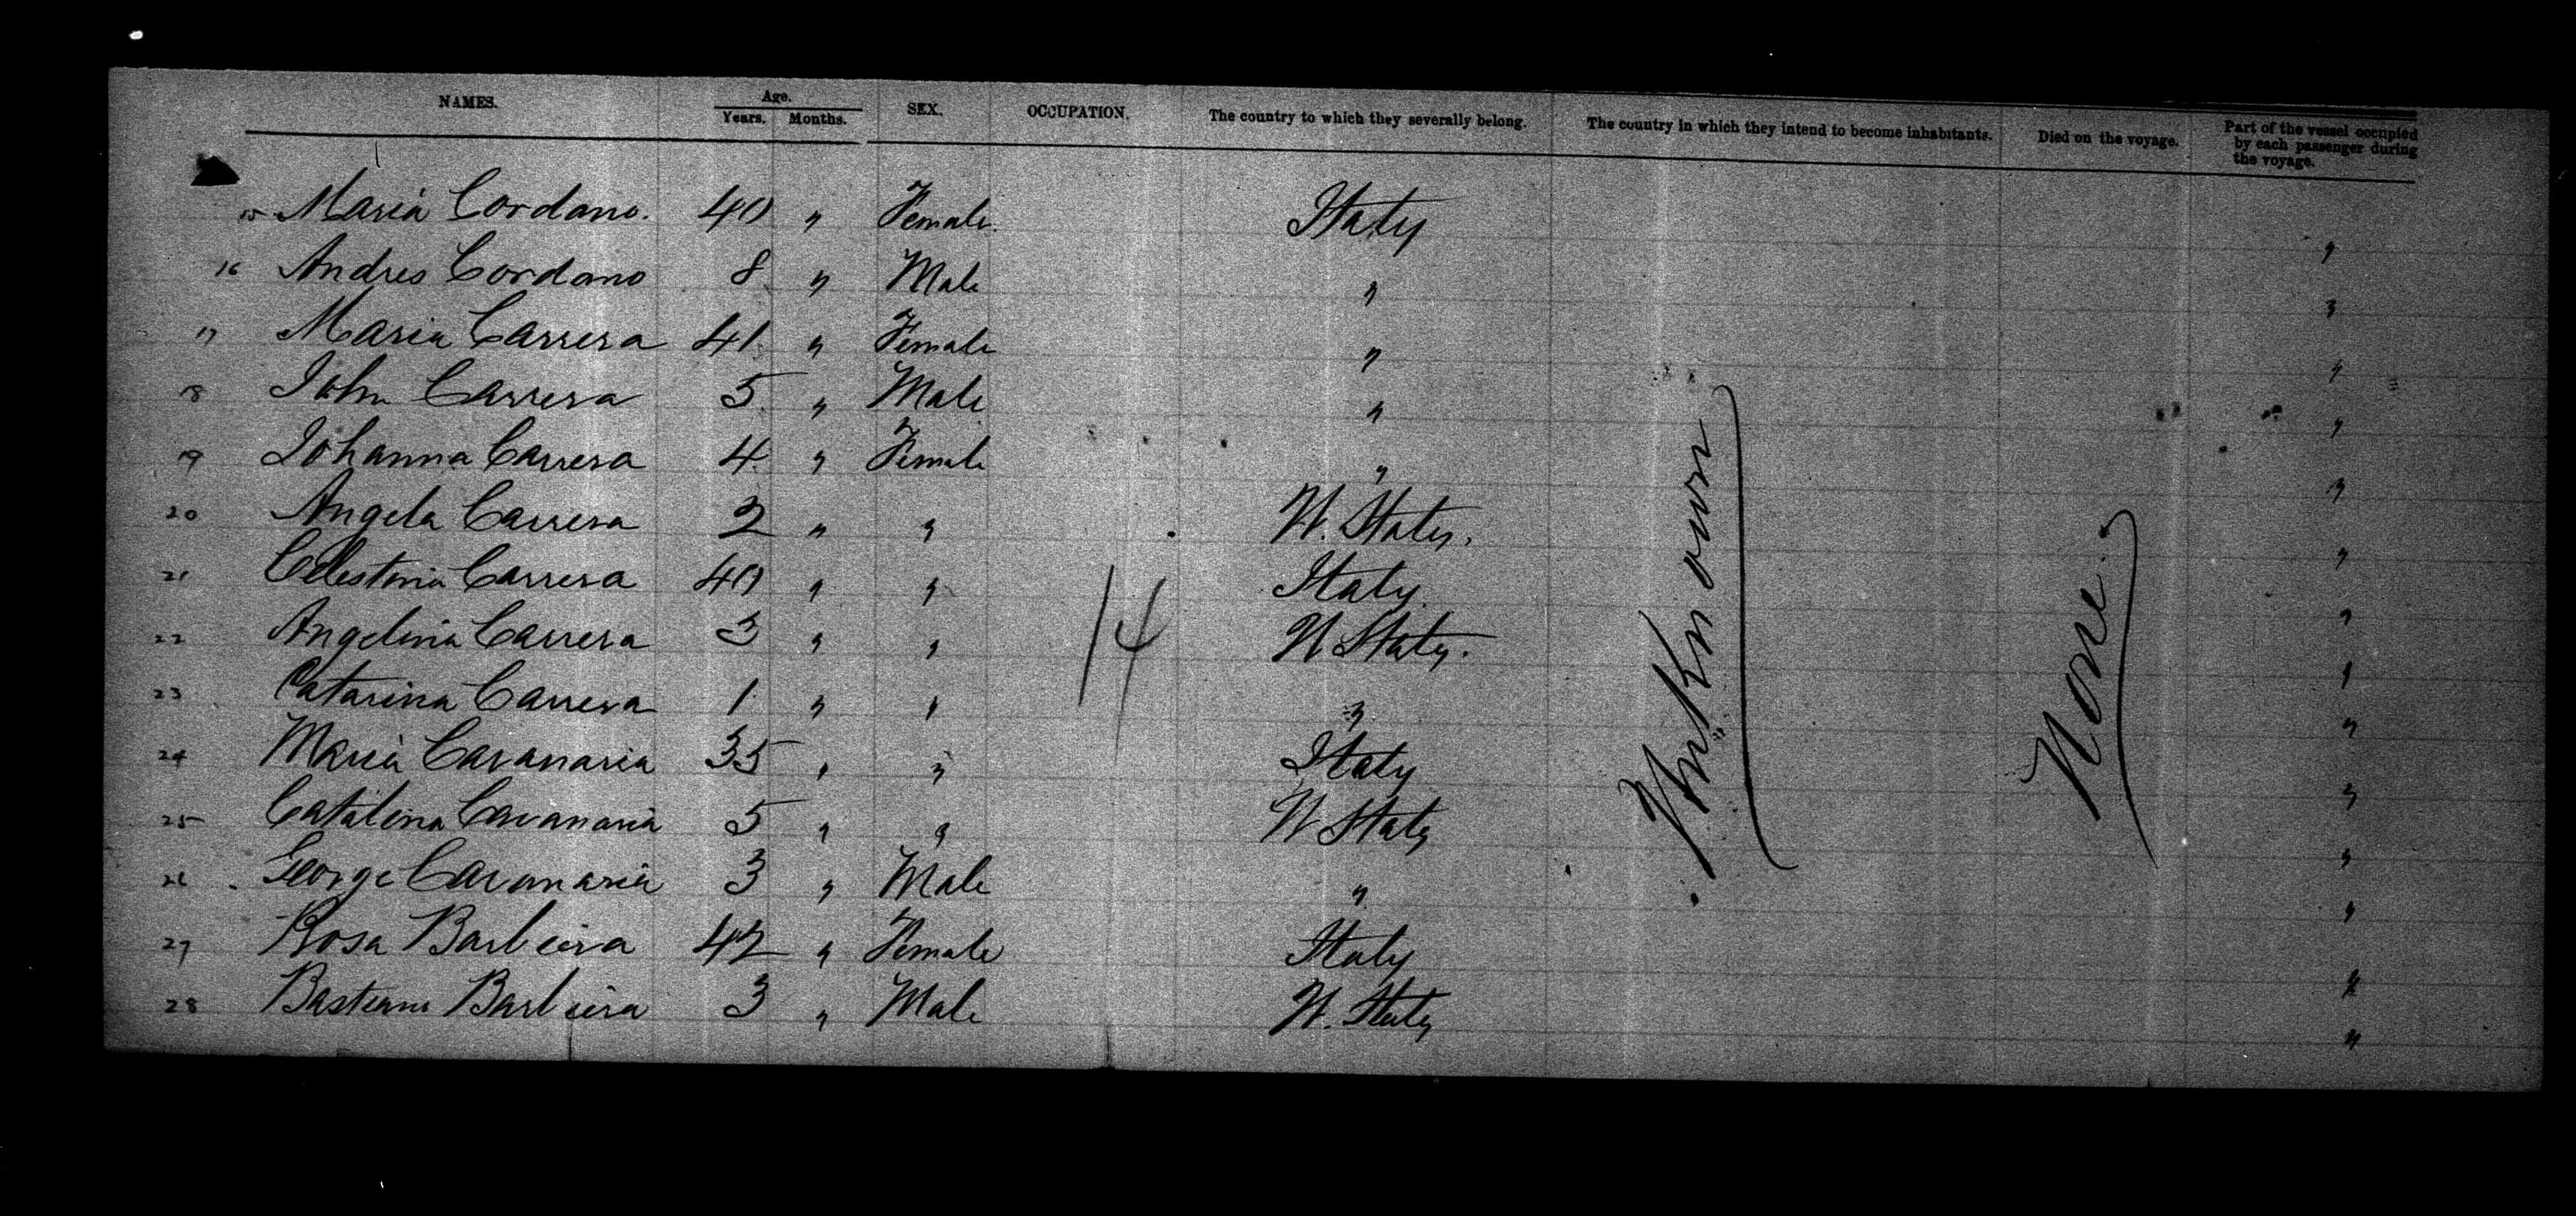 NAMES. Age. Years. Months. SEX. OCCUPATION. The country to which they severally belong. The country in which they intend to become inhabitants. Died on the voyage. Part of the vessel occupied by each passenger during the voyage.
15 Maria Cordano. 40 " Female. Italy "
16 Andres Cordano 8 " Male " "
17 Maria Carrera 41 " Female " "
18 John Carrera 5 " Male " "
19 Johanna Carrera 4 " Female " "
20 Angela Carrera 2 " " U. States. "
21 Celestina Carrera 40 " " Italy "
22 Angelina Carrera 3 " " U States. "
23 Catarina Carrera 1 " " " "
24 Maria Cavanaria 35 " " Italy "
25 Catalina Cavanaria 5 " " U States "
26 George Cavanaria 3 " Male " "
27 Rosa Barbeira 42 " Female Italy "
28 Barbeira 3 " Male U. States "
14
Unknown
None.